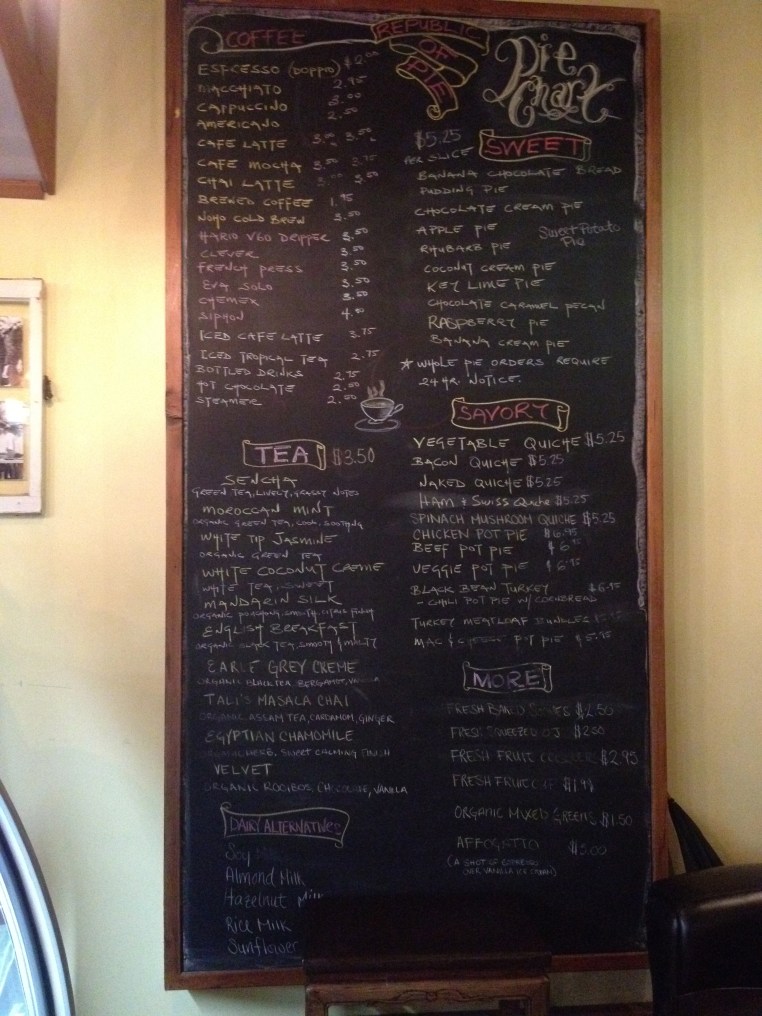 COFFEE
ESPRESSO (DOPPIO) $2.00
MACCHIATO 2.75
CAPPUCCINO 3.00
AMERICANO 2.50
CAFE LATTE 3.00 3.50
CAFE MOCHA 3.50 3.75
CHAI LATTE 3.50
BREWED COFFEE 1.75
NOHO COLD BREW 3.50
HARIO V60 DRIPPER 3.50
CLEVER 3.50
FRENCH PRESS 3.50
EVA SOLO 3.50
CHEMEX 3.50
SIPHON 4.50
ICED CAFE LATTE 3.75
ICED TROPICAL TEA 2.75
BOTTLED DRINKS 2.75
HOT CHOCOLATE 2.50
STEAMER 2.00
TEA $3.50
SENCHA
GREEN TEA, LIVELY, GRASSY NOTES
MOROCCAN MINT
ORGANIC GREEN TEA, COOL, SOOTHING
WHITE TIP JASMINE
ORGANIC GREEN TEA
WHITE COCONUT CREME
WHITE TEA, SWEET
MANDARIN SILK
ORGANIC POUCHONG, SMOOTH, CITRUS FINISH
ENGLISH BREAKFAST
ORGANIC BLACK TEA, SMOOTH & MALTY
EARL GREY CREME
ORGANIC BLACK TEA, BERGAMOT, VANILLA
TALI'S MASALA CHAI
ORGANIC ASSAM TEA, CARDAMOM, GINGER
EGYPTIAN CHAMOMILE
ORGANIC HERB, SWEET CALMING FINISH
VELVET
ORGANIC ROOIBOS, CHOCOLATE, VANILLA
DAIRY ALTERNATIVES
Soy
Almond Milk
Hazelnut Milk
Rice Milk
Sunflower
REPUBLIC
OF
PIE
Pie
Chart
$5.25
PER SLICE
SWEET
BANANA CHOCOLATE BREAD
PUDDING PIE
CHOCOLATE CREAM PIE
APPLE PIE
Sweet Potato
Pie
RHUBARB PIE
COCONUT CREAM PIE
KEY LIME PIE
CHOCOLATE CARAMEL PECAN
RASPBERRY PIE
BANANA CREAM PIE
* WHOLE PIE ORDERS REQUIRE
24 HR. NOTICE.
SAVORY
VEGETABLE QUICHE $5.25
BACON QUICHE $5.25
NAKED QUICHE $5.25
HAM + SWISS Quiche $5.25
SPINACH MUSHROOM QUICHE $5.25
CHICKEN POT PIE $6.95
BEEF POT PIE $6.95
VEGGIE POT PIE $6.95
BLACK BEAN TURKEY $6.95
- CHILI POT PIE W/ CORNBREAD
TURKEY MEATLOAF
MAC & CHEESE POT PIE $5.95
MORE
FRESH BAKED SCONES $2.50
FRESH SQUEEZED OJ $2.50
FRESH FRUIT $2.95
FRESH FRUIT CUP $1.99
ORGANIC MIXED GREENS $1.50
AFFOGATTO $3.00
(A SHOT OF ESPRESSO
OVER VANILLA ICE CREAM)